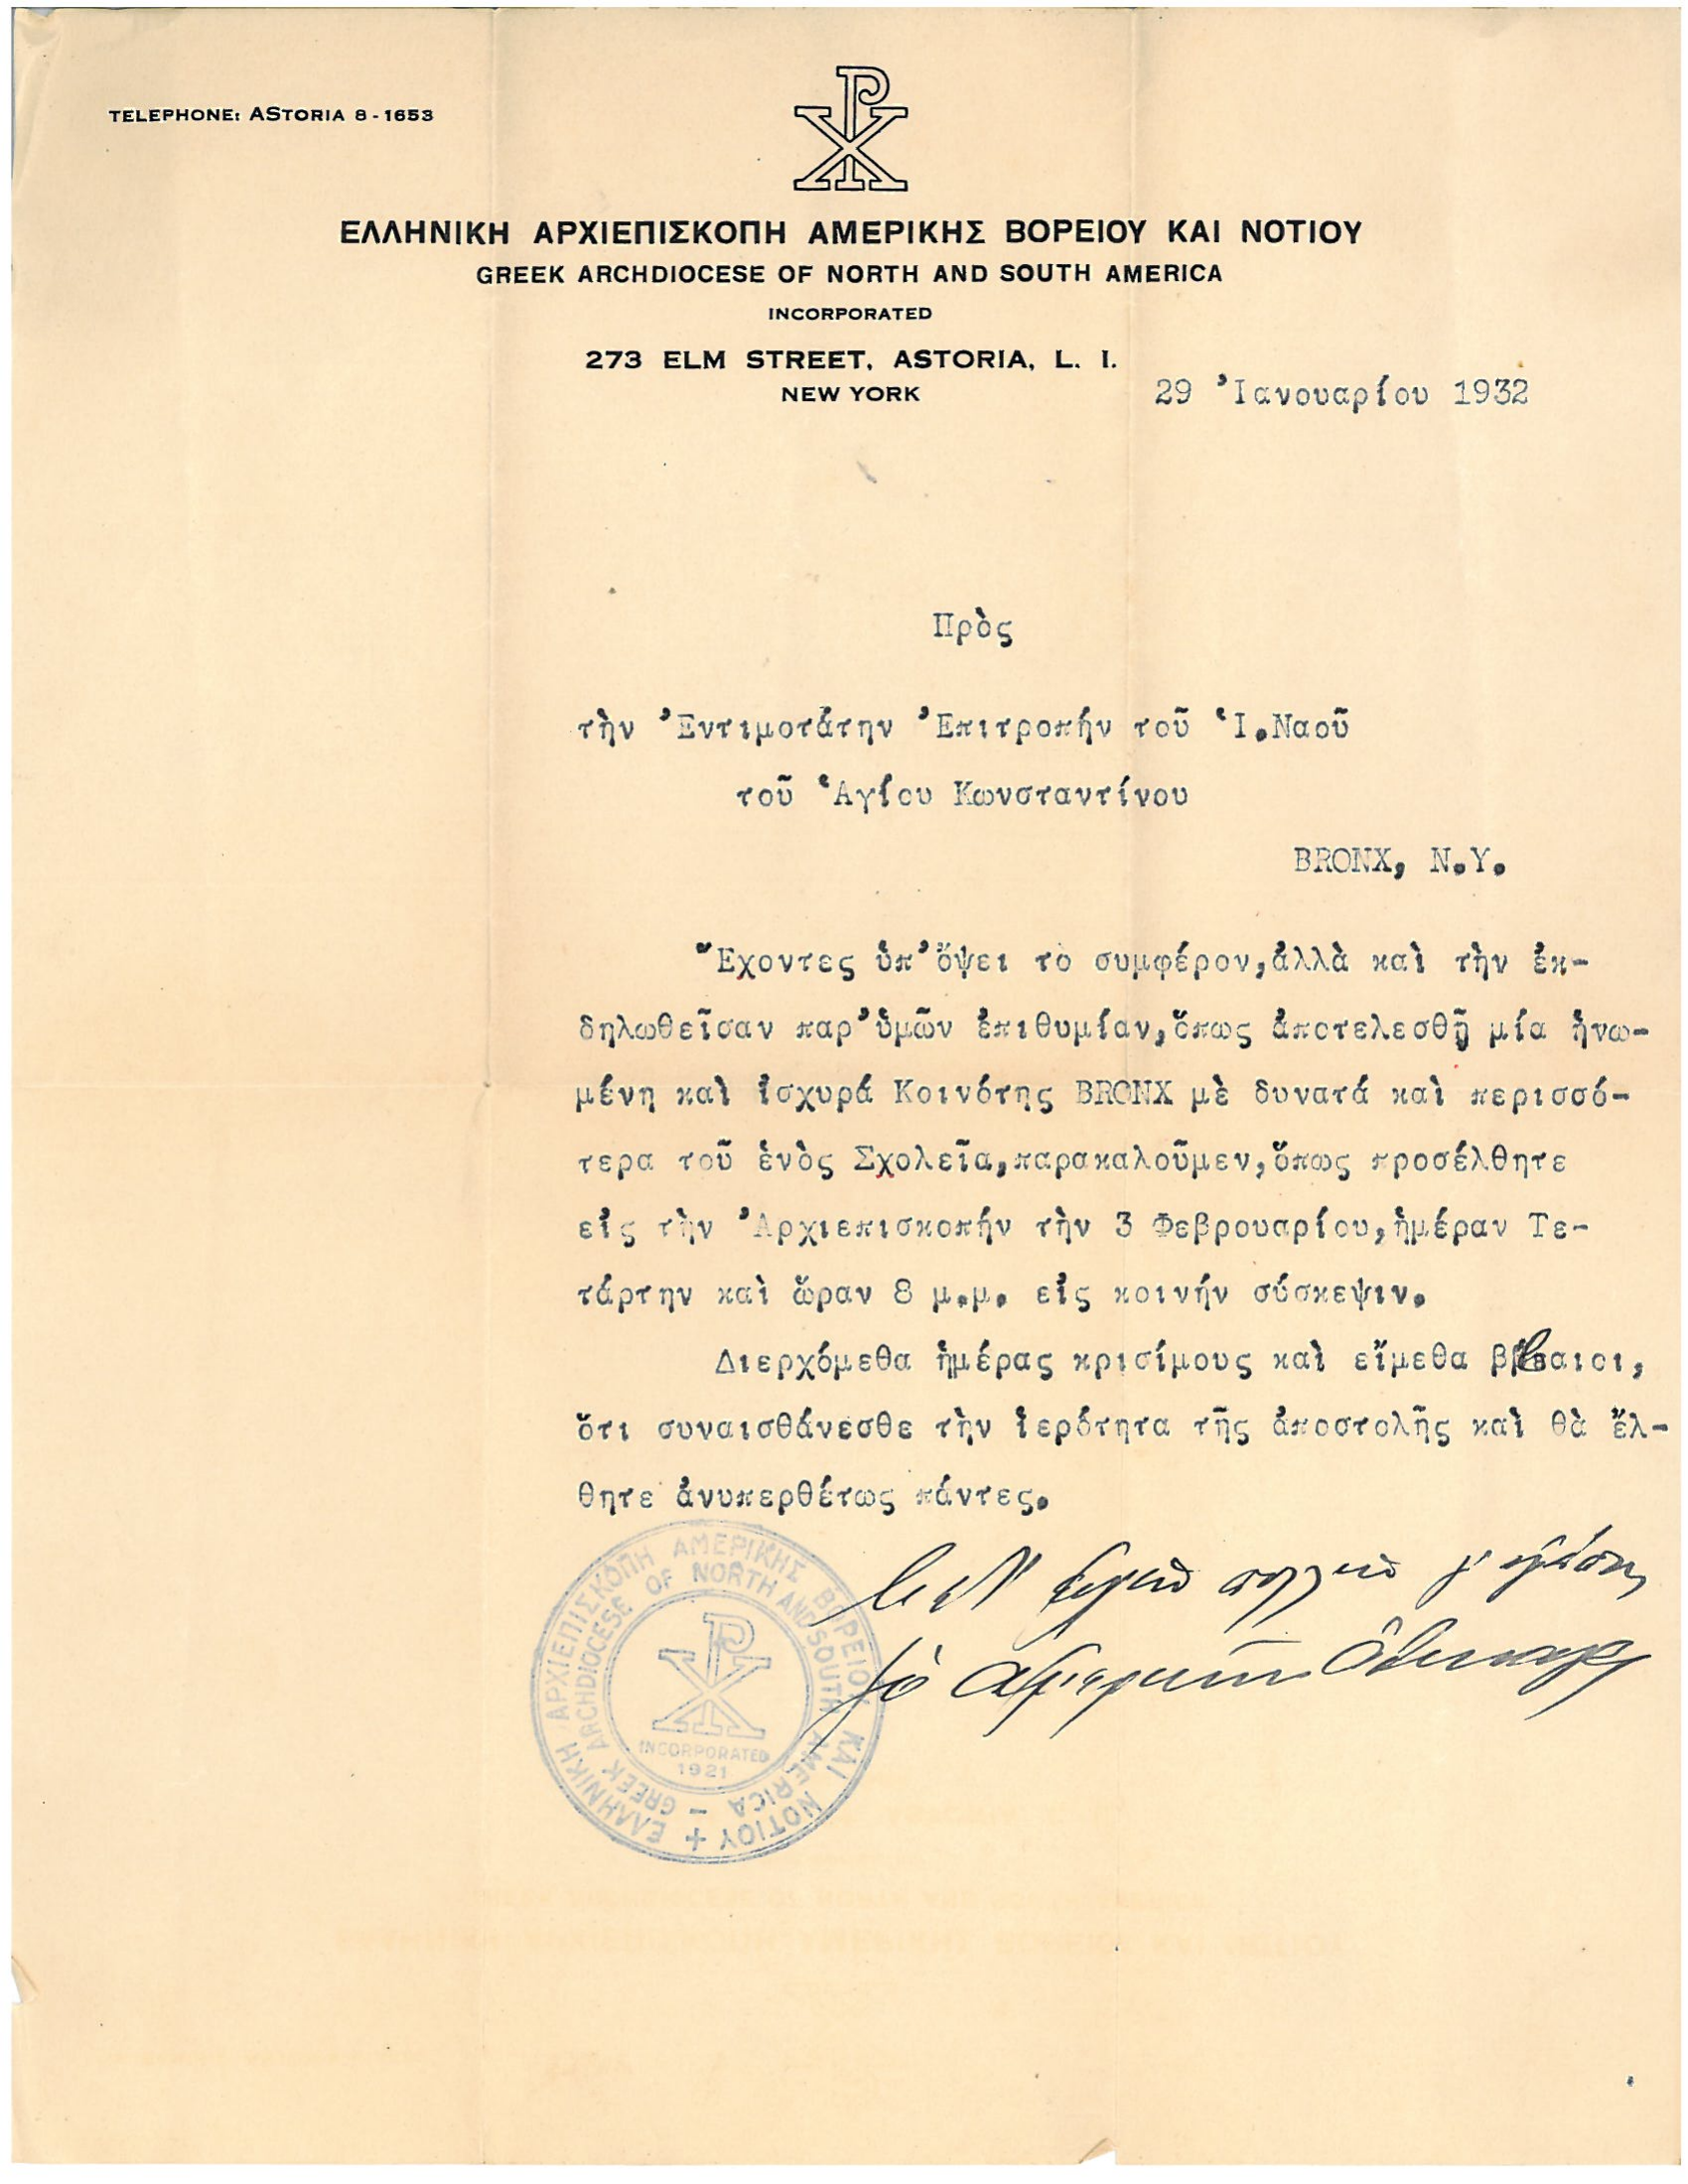 TELEPHONE: ASTORIA 8-1653
ΕΛΛΗΝΙΚΗ ΑΡΧΙΕΠΙΣΚΟΠΗ ΑΜΕΡΙΚΗΣ ΒΟΡΕΙΟΥ ΚΑΙ ΝΟΤΙΟΥ
GREEK ARCHDIOCESE OF NORTH AND SOUTH AMERICA
INCORPORATED
273 ELM STREET, ASTORIA, L. I.
NEW YORK
29 Ἰανουαρίου 1932
Πρὸς
τὴν Ἐντιμοτάτην Ἐπιτροπήν τοῦ Ἱ.Ναοῦ
τοῦ Ἁγίου Κωνσταντίνου
BRONX, N.Y.
Ἔχοντες ὑπ' ὄψει το συμφέρον,ἀλλὰ καὶ τὴν ἐκ-
δηλωθεῖσαν παρ' ὑμῶν ἐπιθυμίαν,ὅπως ἀποτελεσθῇ μία ἡνω-
μένη καὶ ἰσχυρά Κοινότης BRONX μὲ δυνατά καὶ περισσό-
τερα τοῦ ἑνὸς Σχολεῖα,παρακαλοῦμεν,ὅπως προσέλθητε
εἰς τὴν Ἀρχιεπισκοπήν τὴν 3 Φεβρουαρίου,ἡμέραν Τε-
τάρτην καὶ ὥραν 8 μ.μ. εἰς κοινήν σύσκεψιν.
Διερχόμεθα ἡμέρας κρισίμους καὶ εἴμεθα βέβαιοι,
ὅτι συναισθάνεσθε τὴν ἱερότητα τῆς ἀποστολῆς καὶ θὰ ἔλ-
θητε ἀνυπερθέτως πάντες.
ΕΛΛΗΝΙΚΗ ΑΡΧΙΕΠΙΣΚΟΠΗ ΑΜΕΡΙΚΗΣ ΒΟΡΕΙΟΥ ΚΑΙ ΝΟΤΙΟΥ +
GREEK ARCHDIOCESE OF NORTH AND SOUTH AMERICA -
INCORPORATED
1921